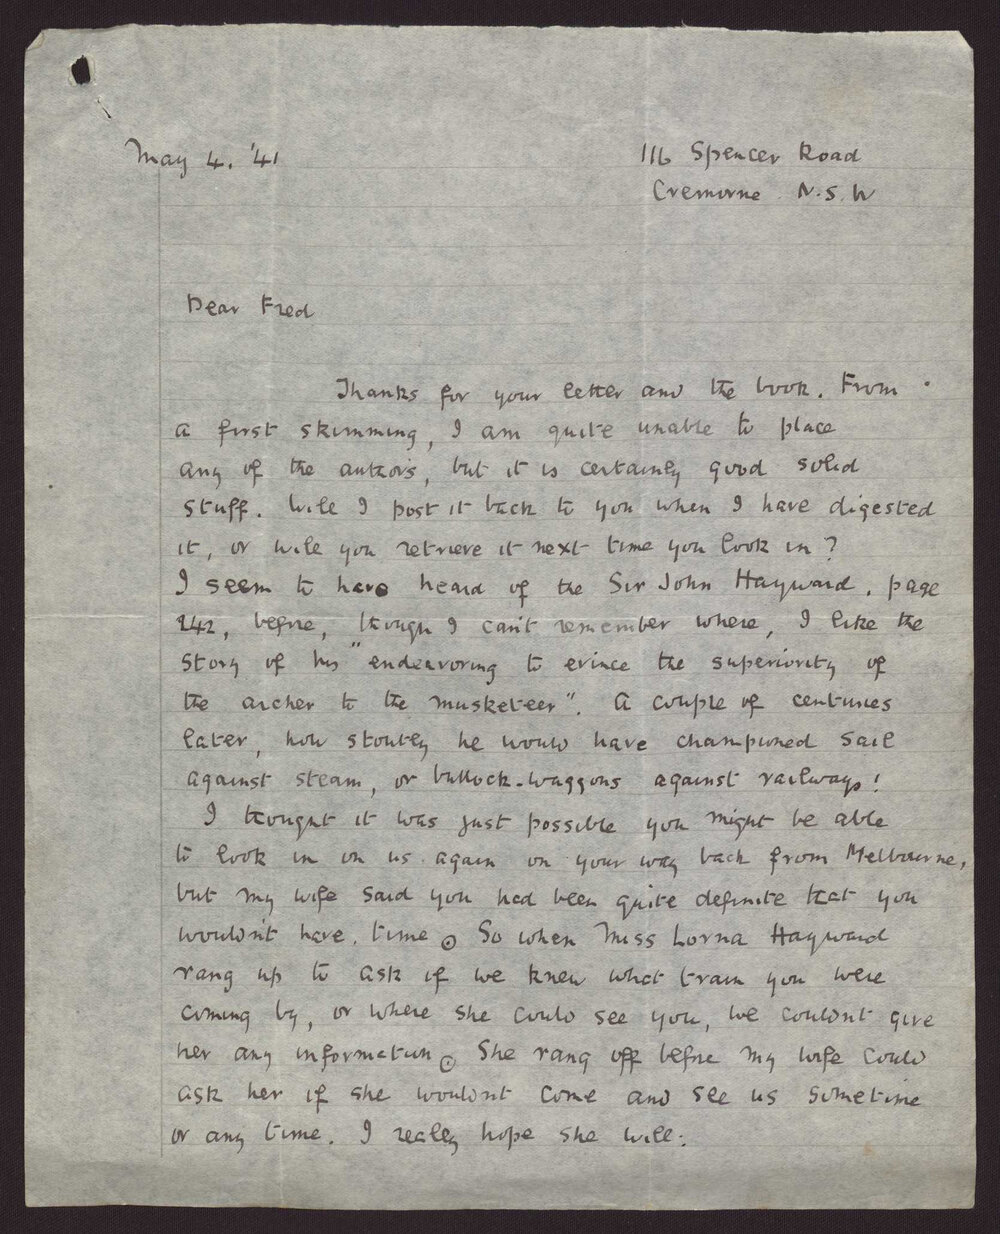 May 4. '41
116 Spencer Road
Cremorne. N.S.W
Dear Fred
Thanks for your letter and the book. From
a first skimming, I am quite unable to place
any of the authors, but it is certainly good solid
stuff. Will I post it back to you when I have digested
it, or will you retrieve it next time you look in?
I seem to have heard of the Sir John Hayward, page
242, before, though I can't remember where, I like the
story of his "endeavoring to evince the superiority of
the archer to the musketeer". A couple of centuries
later, how stoutly he would have championed sail
against steam, or bullock-waggons against railways!
I thought it was just possible you might be able
to look in on us again on your way back from Melbourne,
but my wife said you had been quite definite that you
wouldn't have time. So when Miss Lorna Hayward
rang up to ask if we knew what train you were
coming by, or where she could see you, we couldn't give
her any information. She rang off before my wife could
ask her if she wouldn't come and see us sometime
or any time. I really hope she will.